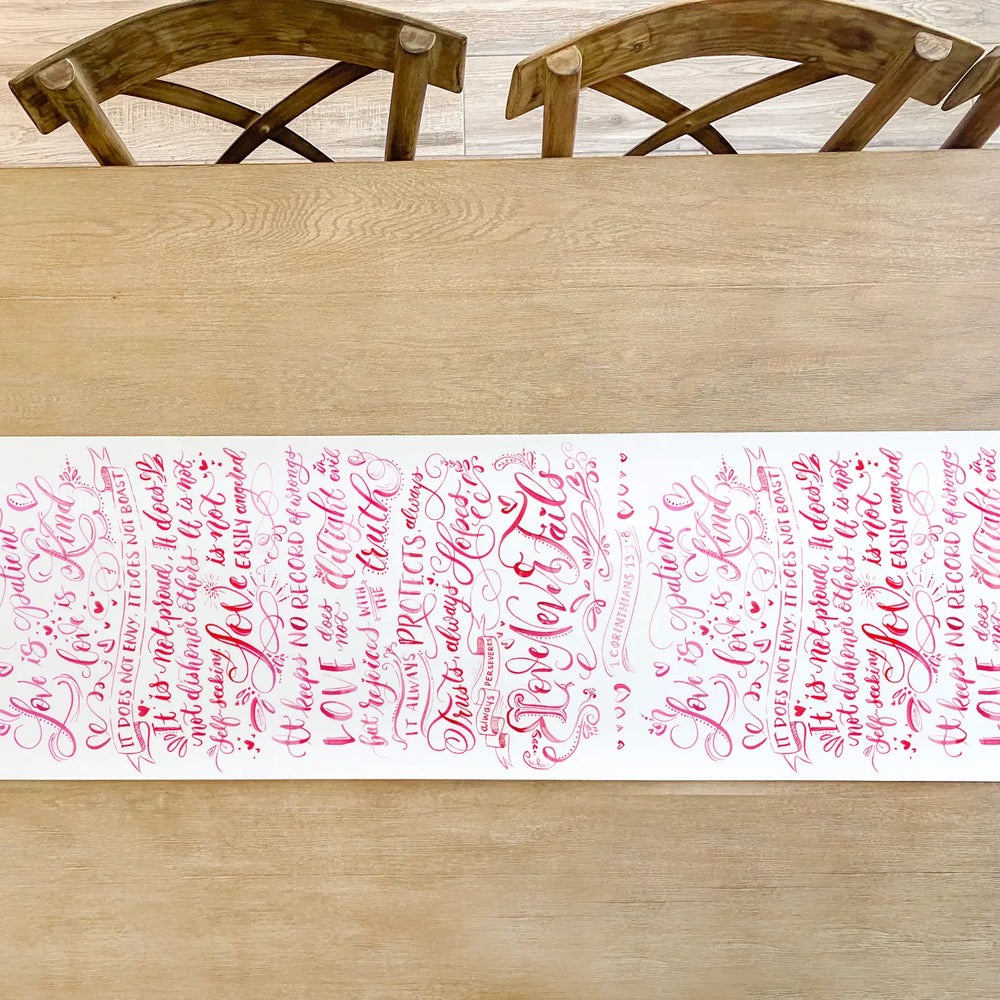 Love is patient
Love is Kind
IT DOES NOT ENVY, IT DOES NOT BOAST
It is not proud. It does
not dishonor others It is not
self-seeking
Love is not
EASILY angered
It keeps NO RECORD of wrongs
LOVE does not delight in evil
but rejoices WITH THE truth
IT ALWAYS PROTECTS always
Trusts, always Hopes
always PERSEVERES
Love Never Fails
1 CORINTHIANS 13:4-8
Love is patient
Love is Kind
IT DOES NOT ENVY, IT DOES NOT BOAST
It is not proud. It does
not dishonor others It is not
self-seeking
Love is not
EASILY angered
It keeps NO RECORD of wrongs
LOVE